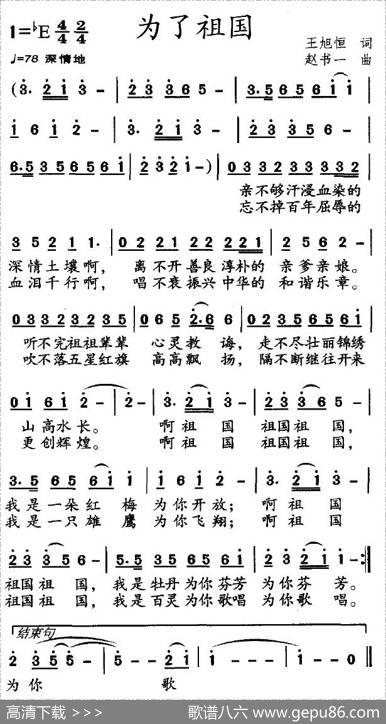 为了祖国
1=♭E 4/4 2/4
王旭恒 词
♩=78 深情地
赵书一 曲
(3. 2 1 3 - 2 3 3 6 5 - 3. 5 6 5 6 1
1 6 1 2 - 3. 2 1 3 - 2 3 3 5 6 -
6. 5 3 5 6 5 6 1 2 3 2 1 - ) 0 3 3 2 3 3 3 3 2
亲不够汗浸血染的
忘不掉百年屈辱的
3 5 2 1 1. 0 2 2 1 2 2 2 2 2 1 5 1 6 2 -
深情土壤啊, 离不开善良淳朴的 亲爹亲娘。
血泪千行啊, 唱不衰振兴中华的 和谐乐章。
0 3 3 2 3 3 2 3 5 0 6 5 2. 6 6 0 1 1 6 1 1 6 5
听不完祖祖辈辈 心灵教诲, 走不尽壮丽锦绣
吹不落五星红旗 高高飘扬, 隔不断继往开来
0 1 6 1 2 - 2 - 3. 2 1 3 - 2 3 3 6 5 -
山高水长。 啊祖国 祖国祖国,
更创辉煌。 啊祖国 祖国祖国,
3. 5 6 5 6 1 1 6 1 2 - 3. 2 1 3 -
我是一朵红梅 为你开放; 啊祖国
我是一只雄鹰 为你飞翔; 啊祖国
2 3 3 5 6 - 5. 5 3 5 6 5 6 1 2 3 2 1 1 - :‖
祖国祖国, 我是牡丹为你芬芳 为你芬芳。
祖国祖国, 我是百灵为你歌唱 为你歌唱。
结束句
2 3 5 5 - 5 - 2 1 1 - - - 1 - 0 0 ‖
为你 歌
高清下载 >>>
歌谱八六 www.gepu86.com